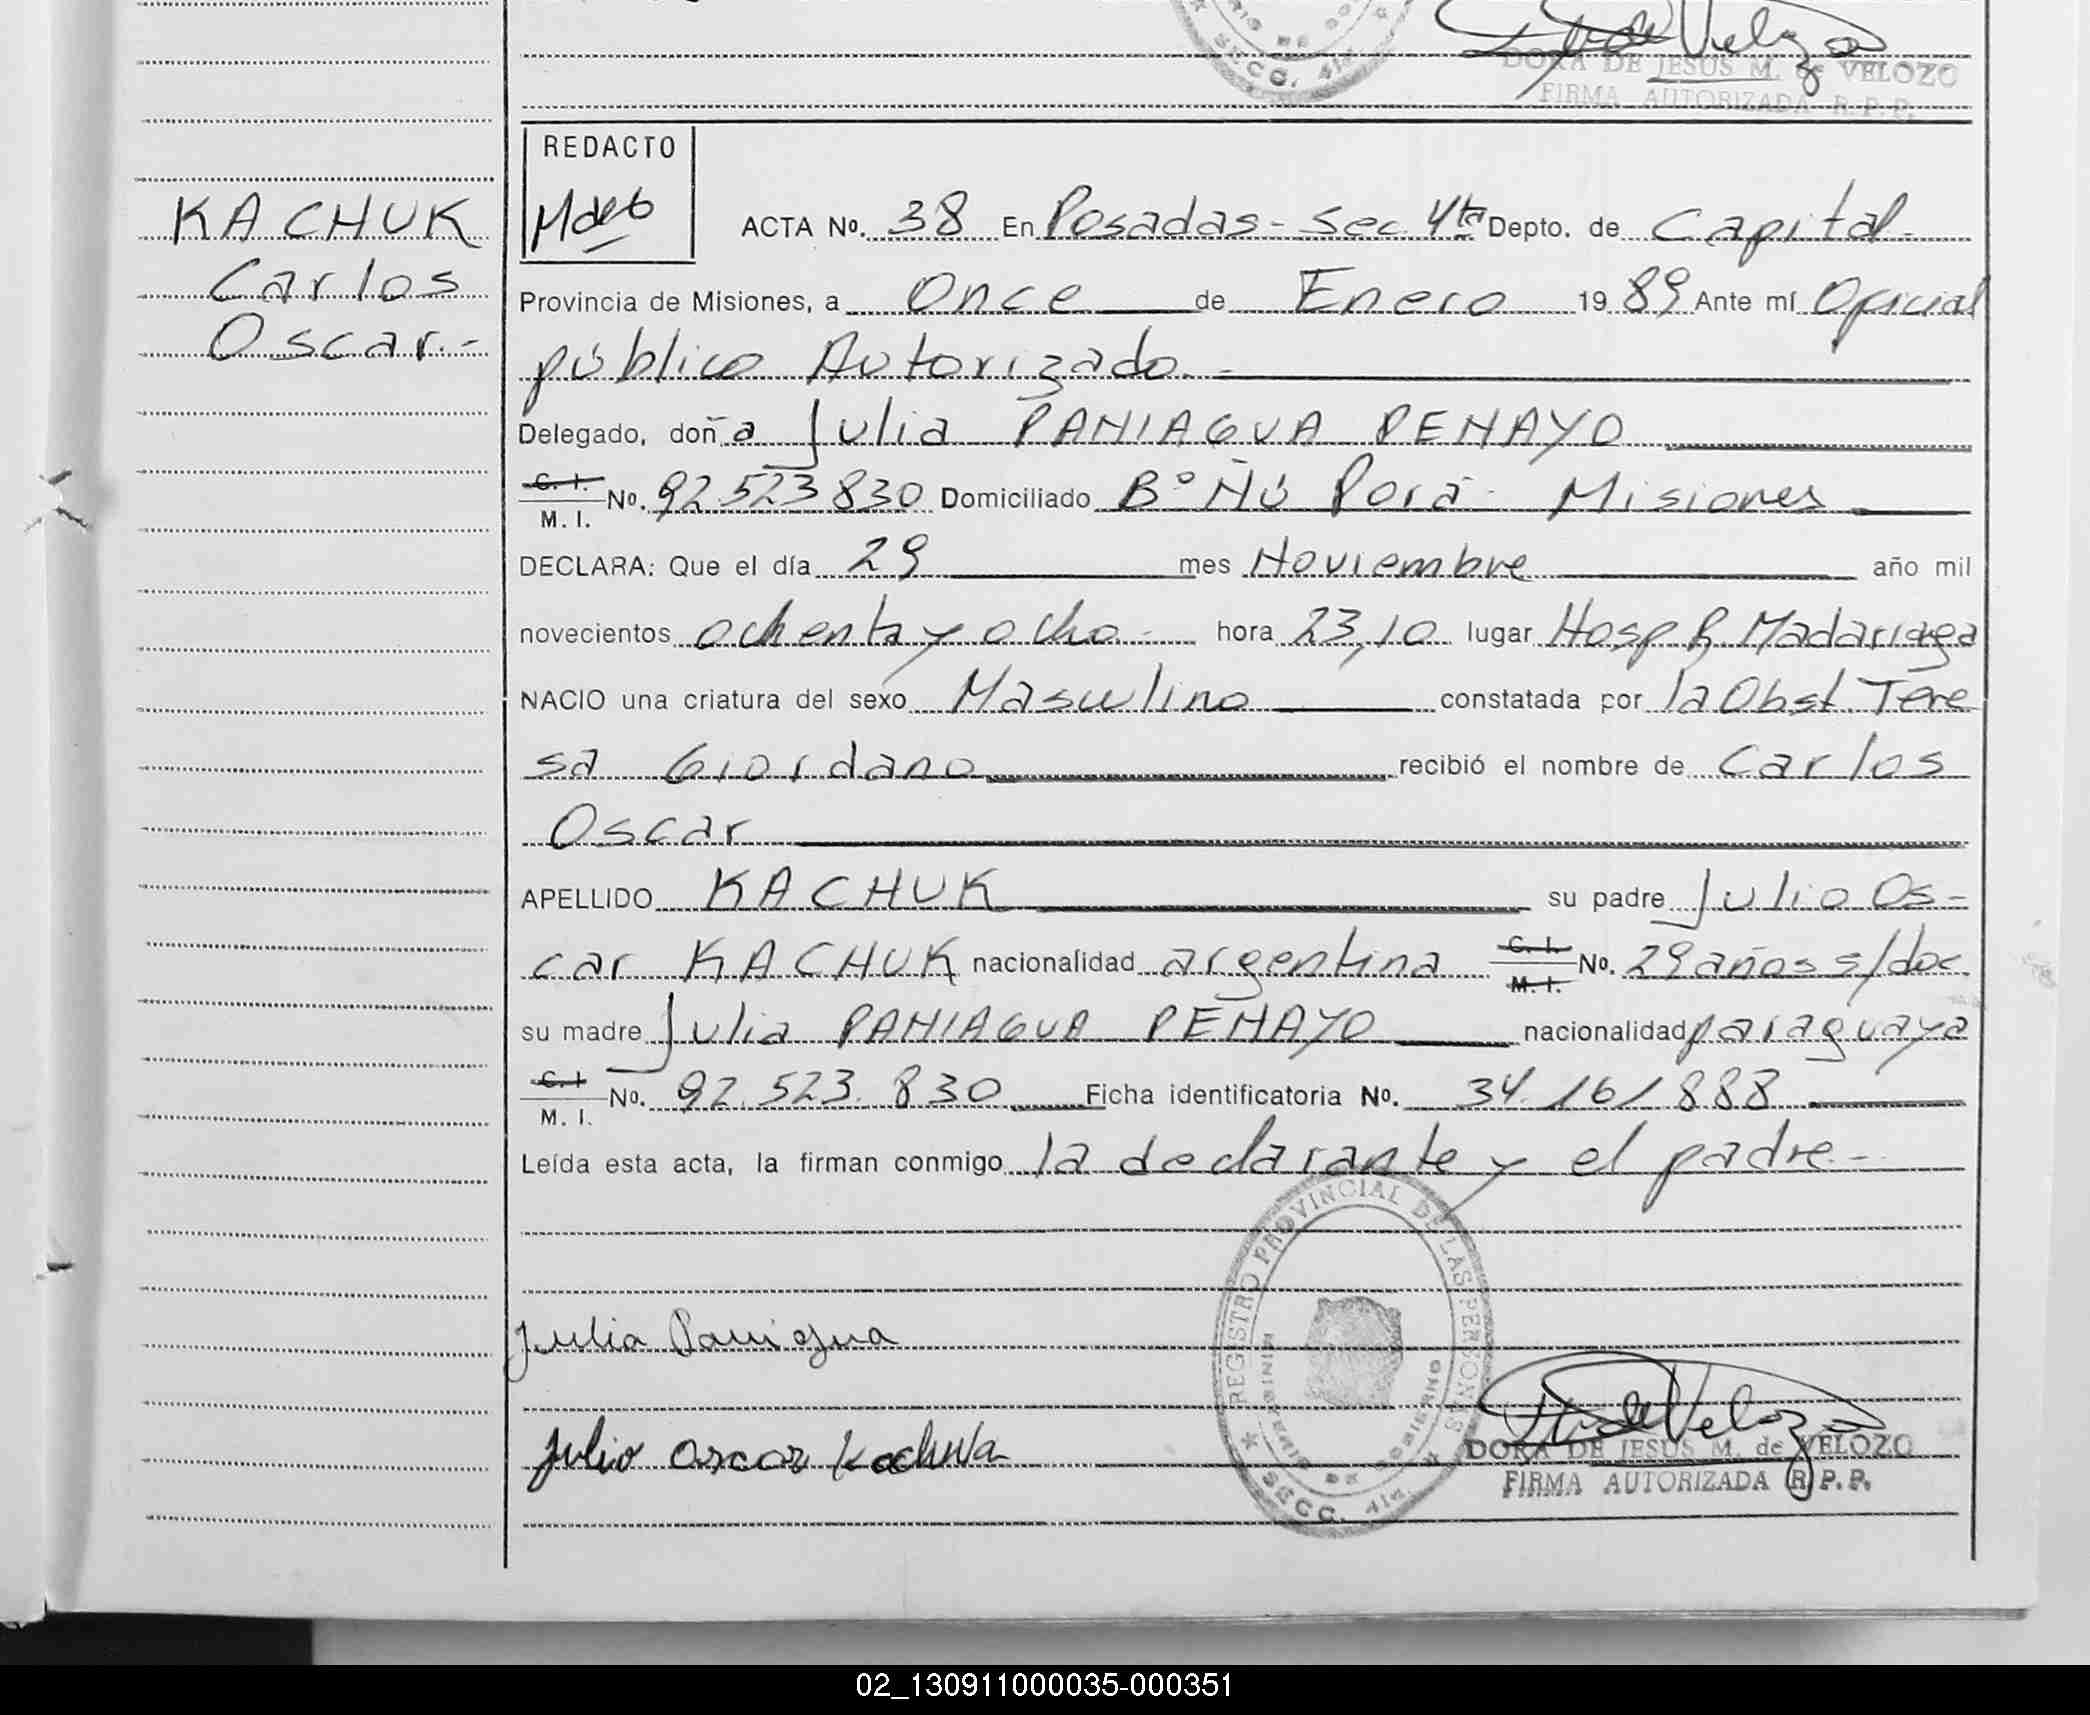 DORA DE JESUS M. de VELOZO
FIRMA AUTORIZADA R.P.P.
SECC. 4ta
KACHUK
Carlos
Oscar.-
REDACTO
ACTA No. 38 En Posadas - Sec. 4ta Depto. de Capital -
Provincia de Misiones, a Once de Enero 1989 Ante mí Oficial
público Autorizado. -
Delegado, doña Julia PANIAGUA PENAYO
C. I. M. I. No. 92.523.830 Domiciliado B° Ñú Porá - Misiones
DECLARA: Que el día 29 mes Noviembre año mil
novecientos ochenta y ocho - hora 23,10 lugar Hosp R. Madariaga
NACIO una criatura del sexo Masculino constatada por la Obst. Tere
sa Giordano recibió el nombre de Carlos
Oscar
APELLIDO KACHUK su padre Julio Os-
car KACHUK nacionalidad argentina C. I. M. I. No. 29 años s/doc
su madre Julia PANIAGUA PENAYO nacionalidad paraguaya
C. I M. I. No. 92.523.830 Ficha identificatoria No. 34.161888
Leída esta acta, la firman conmigo la declarante y el padre -
REGISTRO PROVINCIAL DE LAS PERSONAS
MINISTERIO DE GOBIERNO
SECC. 4ta.
Julia Paniagua
Julio Oscar
de Velozo
DORA DE JESUS M. de VELOZO
FIRMA AUTORIZADA R.P.P.
02_130911000035-000351